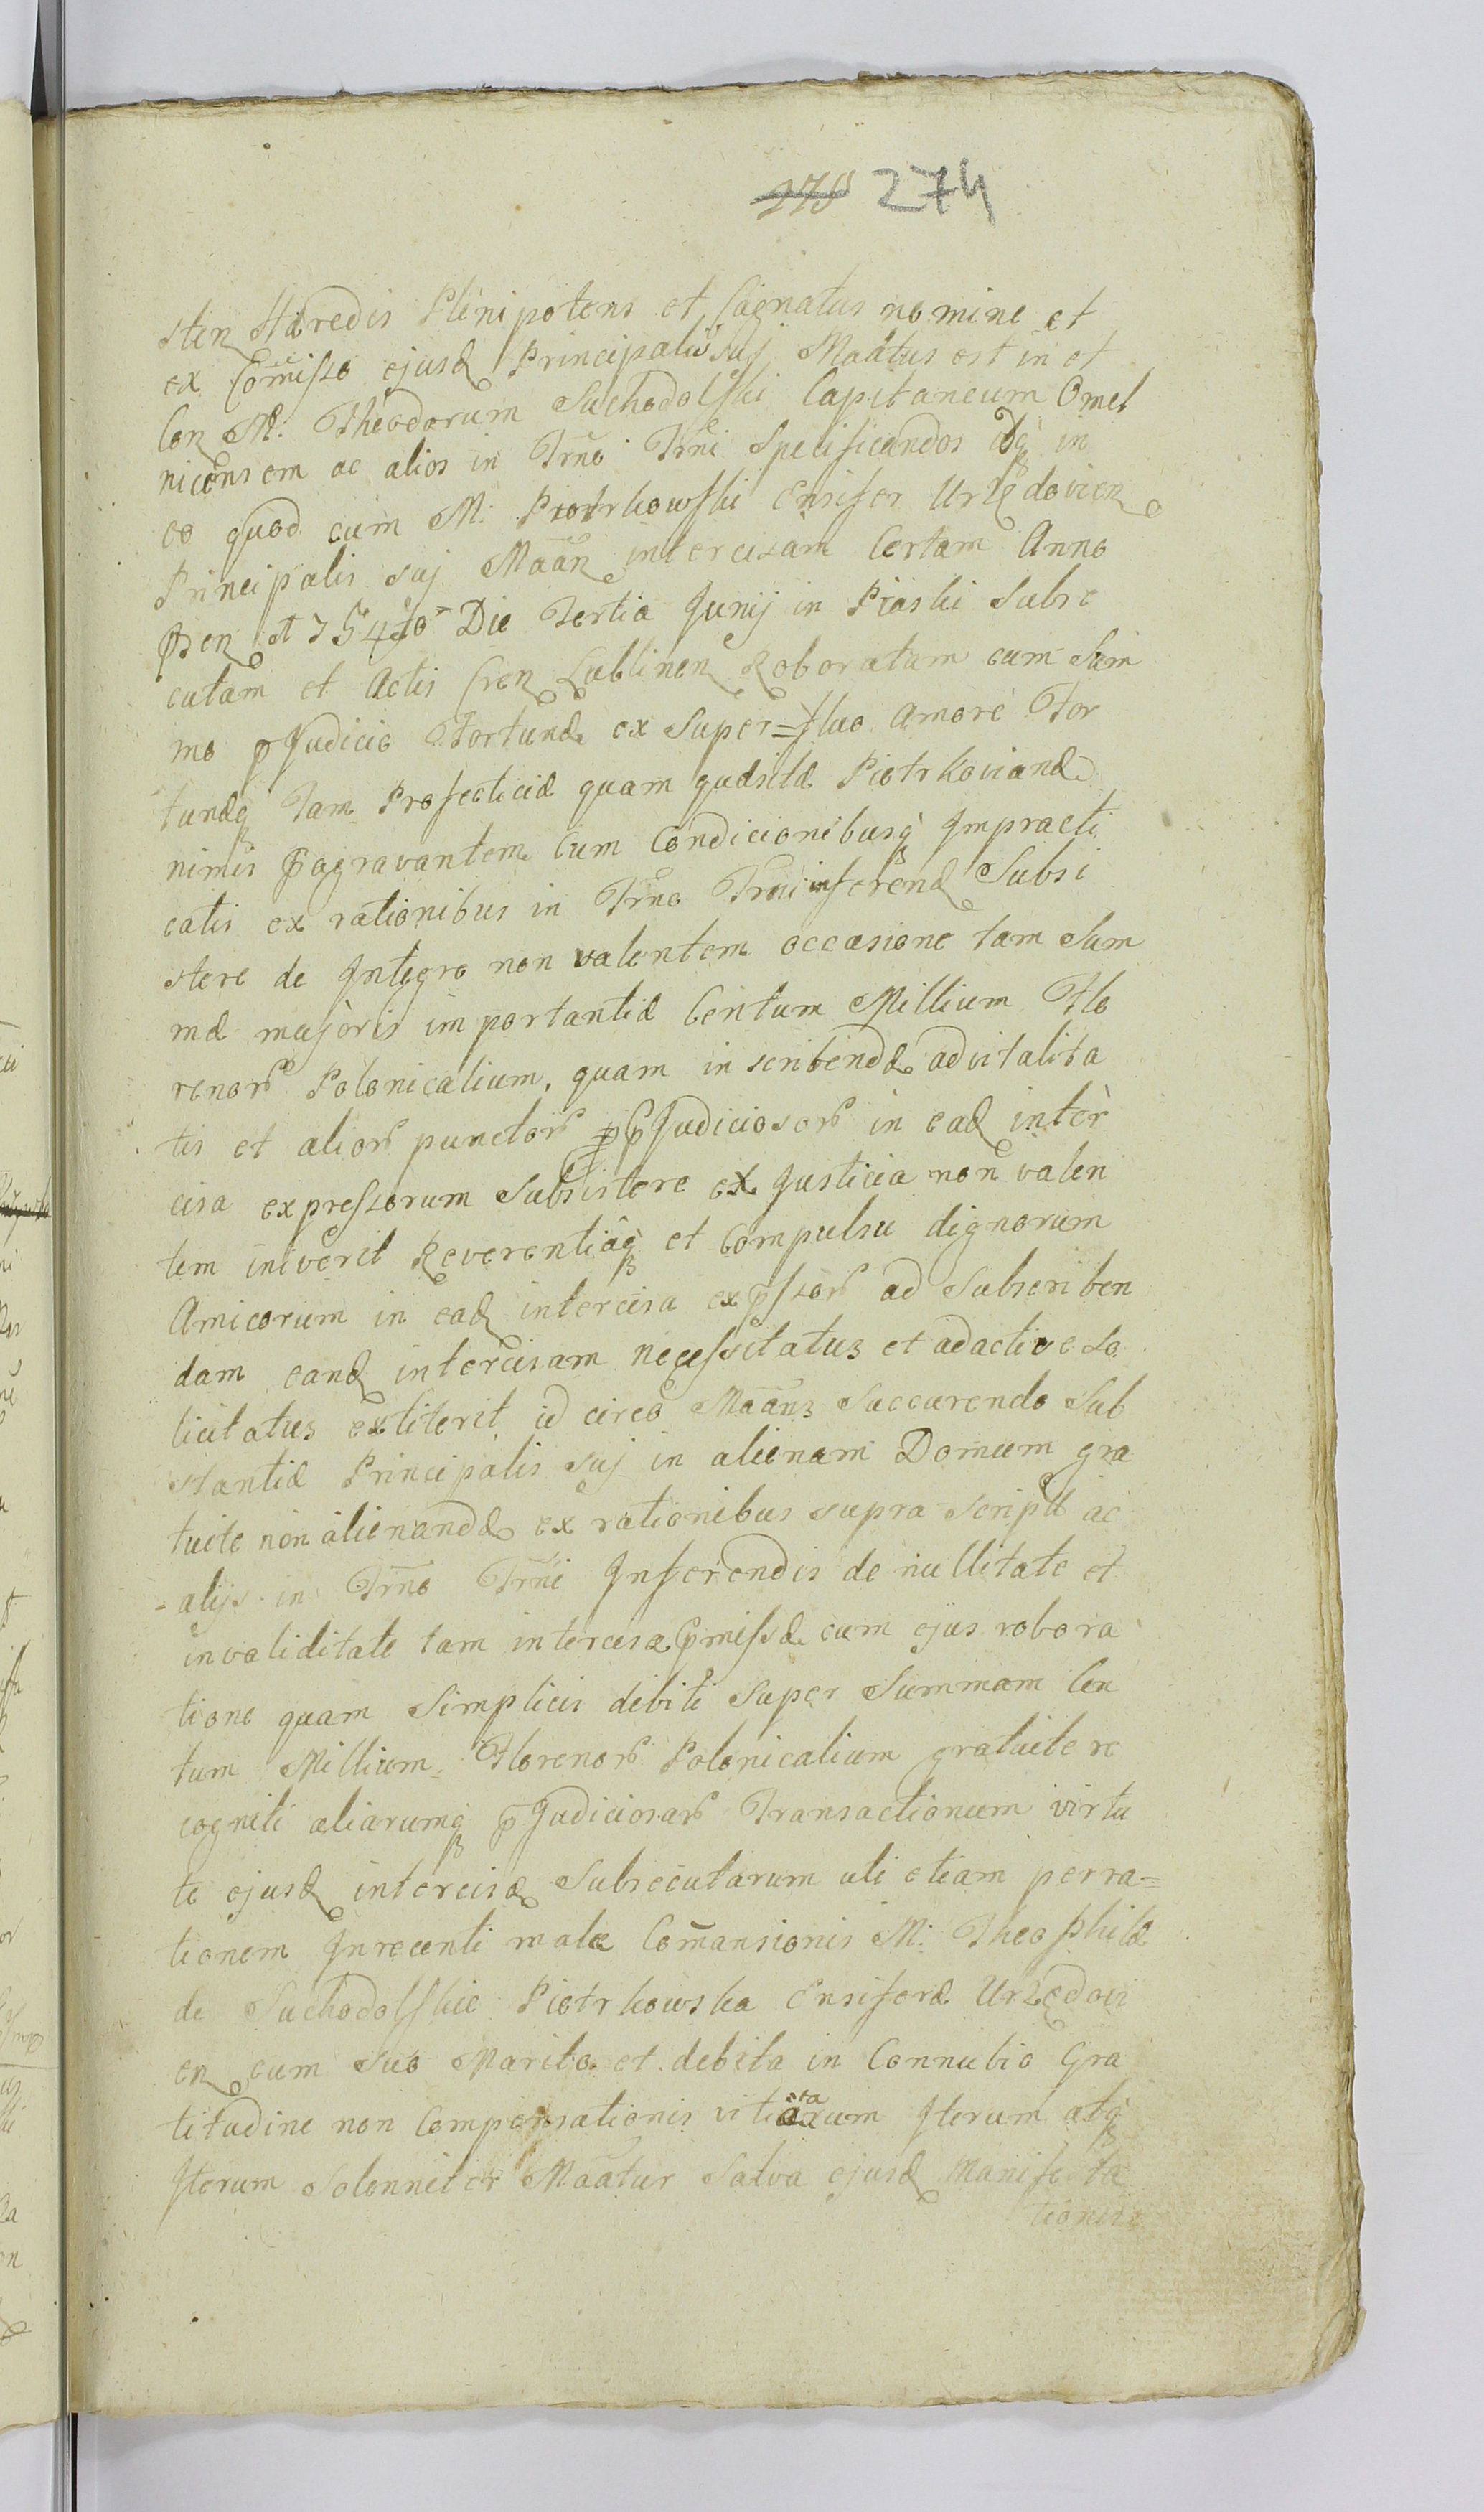 275 274
sten Hæredis Plenipotens et Cognatus nomine et
ex Com̃isso ejusd Principalis suj Maãtus est in et
Con M: Theodorum Suchodolski Capitaneum Omel
nicensem ac alios in Trñò Trñi Specificandos idq́ in
eo quod cum M: Piotrkowski Ensifer Urzędovien
Principalis suj Maãn intercisam Certam Anno
Pñen 1754to Die Tertia Junij in Piaski Subse
cutam et Actis Cren Lublinen Roboratam cum Sum
mo pJudicio Fortunæ ex Super=fluo Amore For
tunæq Tam Profecticiæ quam quæsitæ Piotrkovianæ
nimis pagravantem Cum Condicionibusq́ Jmpracti
catis ex rationibus in Trñò Trñi inferend Subsi
stere de Jntegro non valentem occasione tam Sum
mæ majoris importantiæ Centum Millium Flo
renor Polonicalium, quam inscribendæ advitalita
tis et alior punctor pJudiciosor in ead inter
cisa expressorum Subsistere ex Justicia non valen
tem iniverit Reverentiâq́ et Compulsu dignorum
Amicorum in ead intercisa expssor ad Subscriben
dam eand intercisam necessitatus et adactive so
licitatus extiterit id circo Maãns Succurendo Sub
stantiæ Principalis suj in alienam Domum gra
tuite non alienandæ ex rationibus supra script ac
alijs in Trñò Trñi Jnferendis de nullitate et
invaliditate tam intercisæ pmissæ cum ejus robora
tione quam Simplicis debiti Super Summam Cen
tum Millium Florenor Polonicalium gratuite re
cogniti aliarumq́ pJudiciosar Transactionum virtu
te ejusd intercisæ Subsecutarum uti etiam perra=
tionem Jnrecenti malæ Com̃ansionis M: Theophilæ
de Suchodolskie Piotrkowska Ensiferæ Urzędovi
en cum suo Marito et debita in Connubio Gra
titudine non Compensationis Jterum atq́
Jterum Solenniter Maãtur Salva ejusd Manifesta
tionis